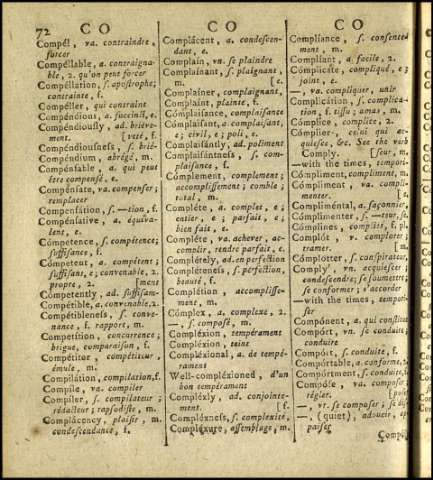 72 C O
C O
C O
Compél, va. contraindre,
forcer
Compéllable, a. contraignable,
2. qu'on peut forcer
Compéllation, s. apostrophe;
contrainte, f.
Compéller, qui contraint
Compéndious, a. succinct, e.
Compéndiously, ad. brièvement
[veté, f.
Compéndiousness, s. brié-
Compéndium, abrégé, m.
Compénsable, a. qui peut
être compensé, e.
Compénsate, va. compenser;
remplacer
Compensátion, s. —tion, f.
Compénsative, a. équivalent,
e.
Cómpetence, s. compétence;
suffisance, f.
Cómpetent, a. compétent;
suffisant, e; convenable, 2.
propre, 2. [ment
Cómpetently, ad. suffisam-
Compétible, a. convenable, 2.
Compétibleness, s. convenance,
f. rapport, m.
Competítion, concurrence;
brigue, comparaison, f.
Compétitor, compétiteur,
émule, m.
Compilátion, compilation, f.
Compíle, va. compiler
Compíler, s. compilateur;
rédacteur; rapsodiste, m.
Complácency, plaisir, m.
condescendance, f.
Complácent, a. condescendant,
e.
Compláin, vn. se plaindre
Compláinant, s. plaignant,
m. [e.
Compláiner, complaignant,
Compláint, plainte, f.
Compláisance, complaisance
Compláisant, a. complaisant,
e; civil, e; poli, e.
Compláisantly, ad. poliment
Compláisantness, s. complaisance,
f.
Cómplement, complement;
accomplissement; comble;
total, m.
Compléte, a. complet, e;
entier, e; parfait, e;
bien fait, e.
Compléte, va. achever, accomplir,
rendre parfait, e.
Complétely, ad. en perfection
Compléteness, s. perfection,
beauté, f.
Complétion, accomplissement,
m.
Cómplex, a. complexe, 2.
—, s. composé, m.
Compléxion, tempérament
Compléxion, teint
Compléxional, a. de tempérament
Well-compléxioned, d'un
bon tempérament
Compléxly, ad. conjointement.
[f.
Compléxness, s. complexité,
Compléxure, assemblage, m.
Complíance, s. consentement,
m.
Complíant, a. facile, 2.
Cómplicate, compliqué, e;
joint, e.
—, va. compliquer, unir
Complicátion, s. complication,
f. tissu; amas, m.
Cómplice, complice, 2.
Complíer, celui qui acquiesce,
&c. See the verb
Comply. [seur, m.
—with the times, tempori-
Cómpliment, compliment, m.
Cómpliment, va. complimenter.
[e.
Compliméntal, a. façonnier,
Cómplimenter, s. —teur, se,
Cómplines, complies, f. pl.
Complót, v. comploter;
tramer. [m.
Complótter, s. conspirateur,
Complý, vn. acquiescer;
condescendre; se soumettre;
se conformer; s'accorder
—with the times, temporiser
Compónent, a. qui constitue
Compórt, vn. se conduire;
conduite
Compórt, s. conduite, f.
Compórtable, a. conforme, 2.
Compórtment, s. conduite, f.
Compóse, va. composer;
régler. [poser
—, vr. se composer; se dis-
—, (quiet), adoucir, appaiser
Compó